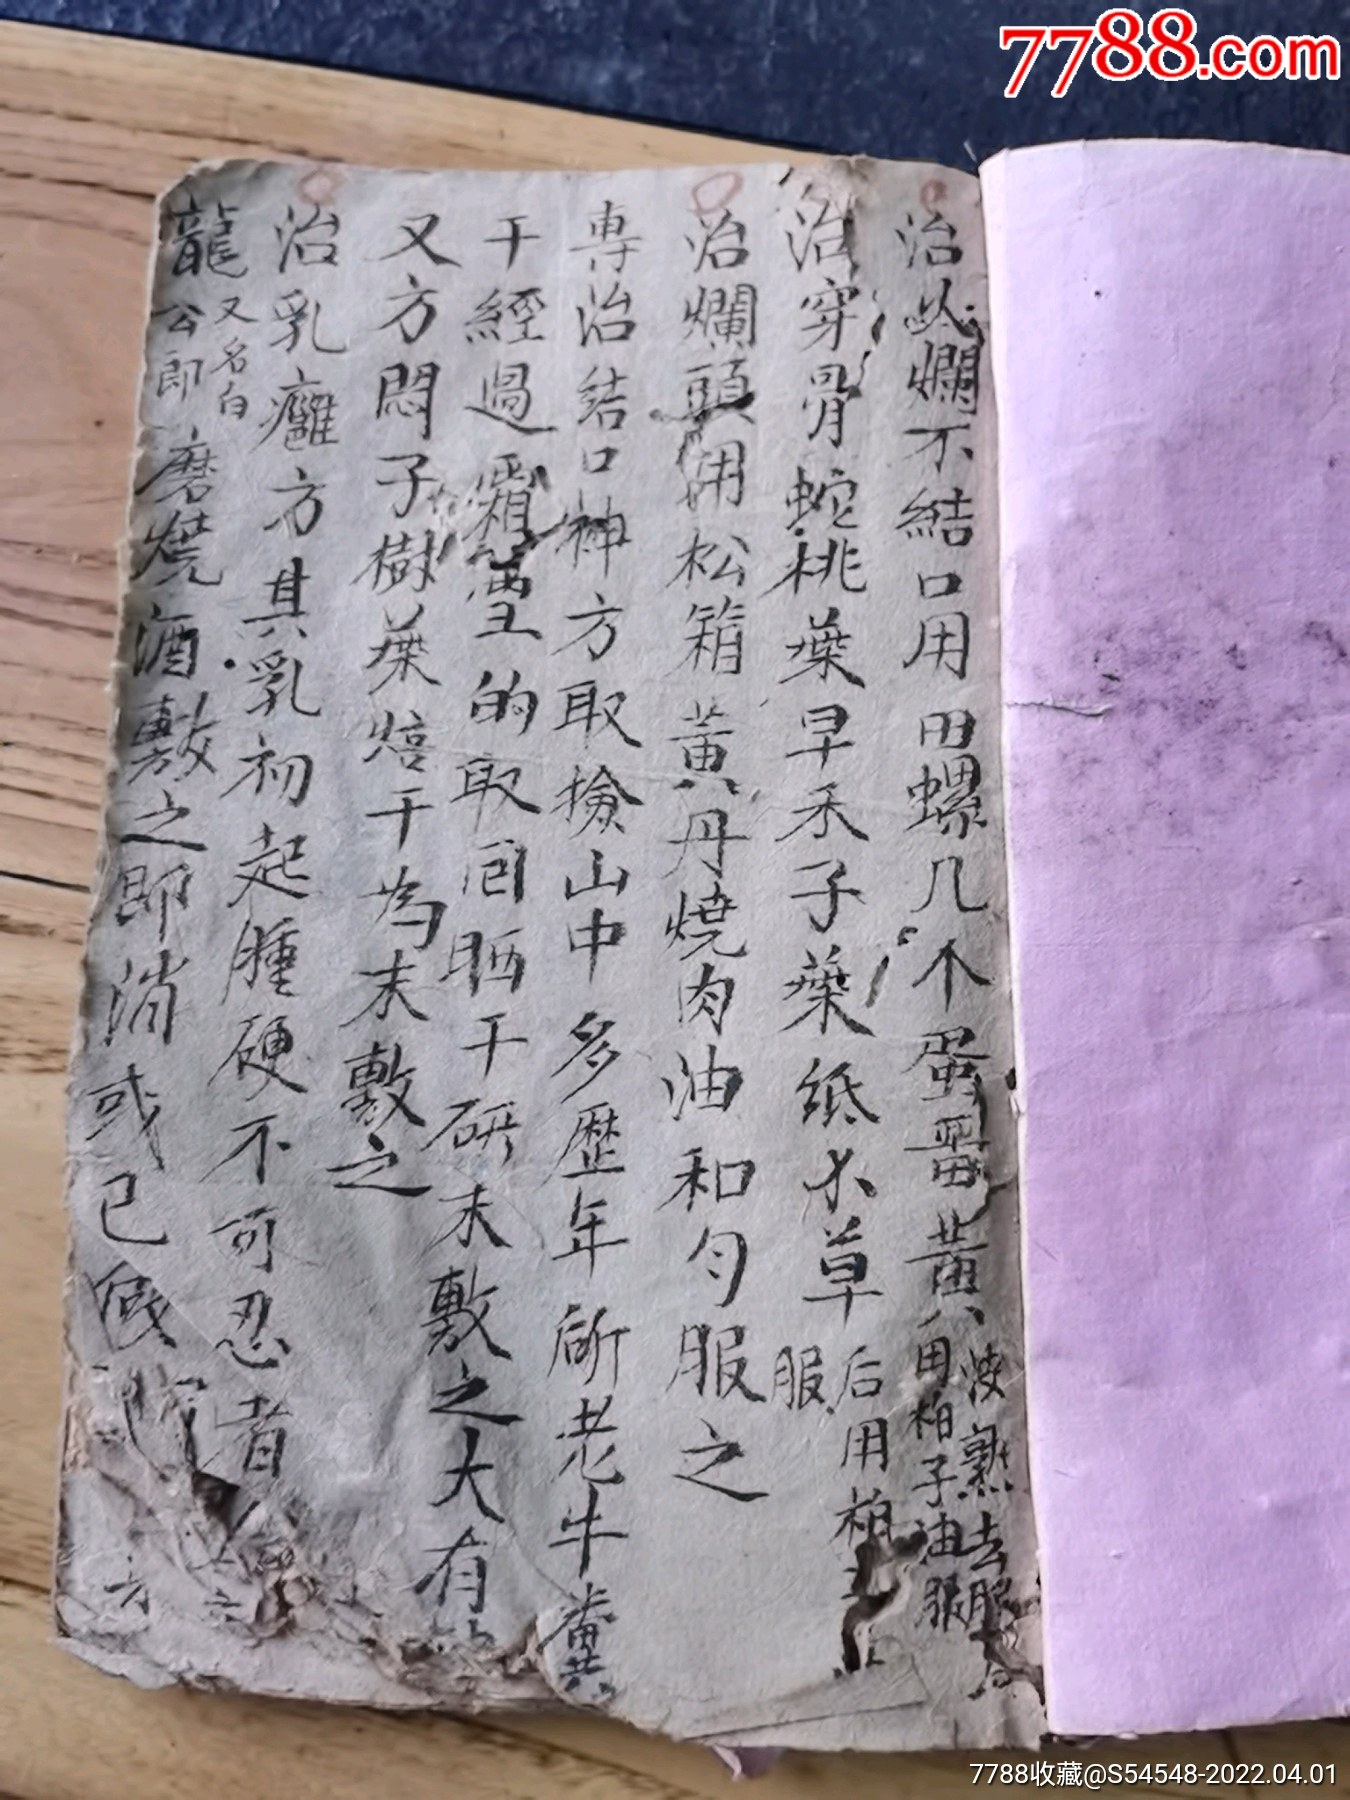 7788.com
治爛不結口用田螺几个蛋黃
煑熟去服
用柏子油服
治穿骨蛇桃葉早禾子葉紙木草
后用柏
服
治爛頭用松箱黃丹燒肉油和勻服之
專治結口神方取撿山中多歷年所老牛糞
干經過霜雪的取回晒干研末敷之大有
又方悶子樹葉焙干為末敷之
治乳癰方其乳初起腫硬不可忍者
龍
又名白
公即
磨燒酒敷之即消或已
7788收藏@S54548-2022.04.01